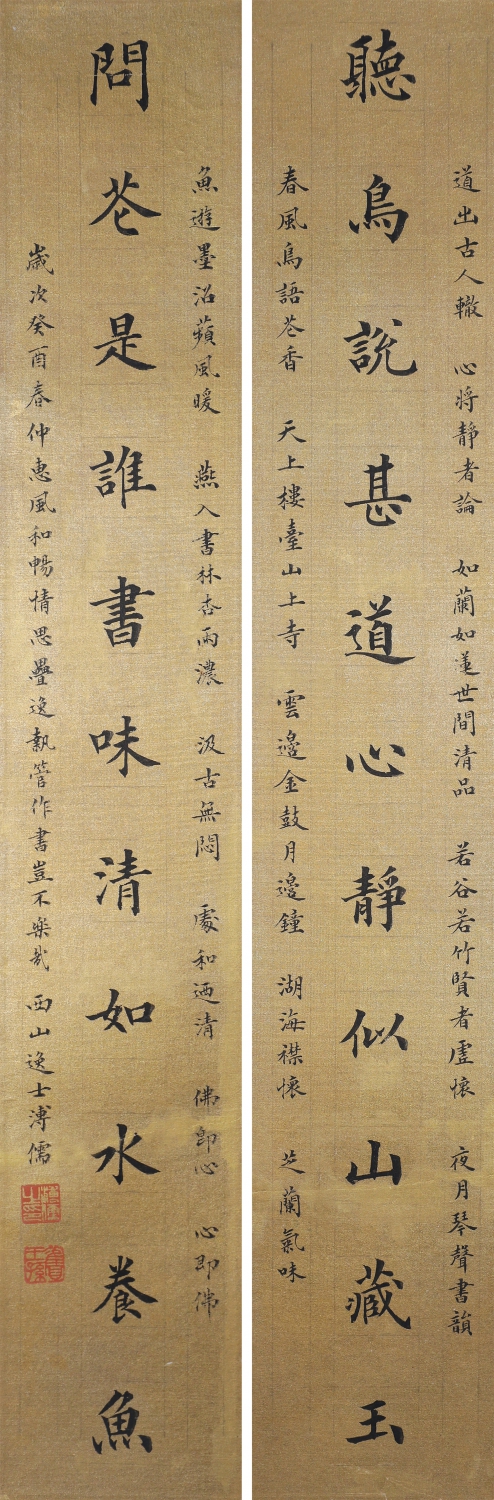 道出古人轍 心將靜者論 如蘭如蓮世間清品 若谷若竹賢者虛懷 夜月琴聲書韻
聽鳥說甚道心靜似山藏玉
春風鳥語花香 天上樓臺山上寺 雲邊金鼓月邊鐘 湖海襟懷 芝蘭氣味
魚遊墨沼蘋風暖 燕入書林杏雨濃 汲古無悶 處和迺清 佛即心 心即佛
問花是誰書味清如水養魚
歲次癸酉春仲惠風和暢情思疊逸執管作書豈不樂哉 西山逸士溥儒
溥儒之印
舊王孫